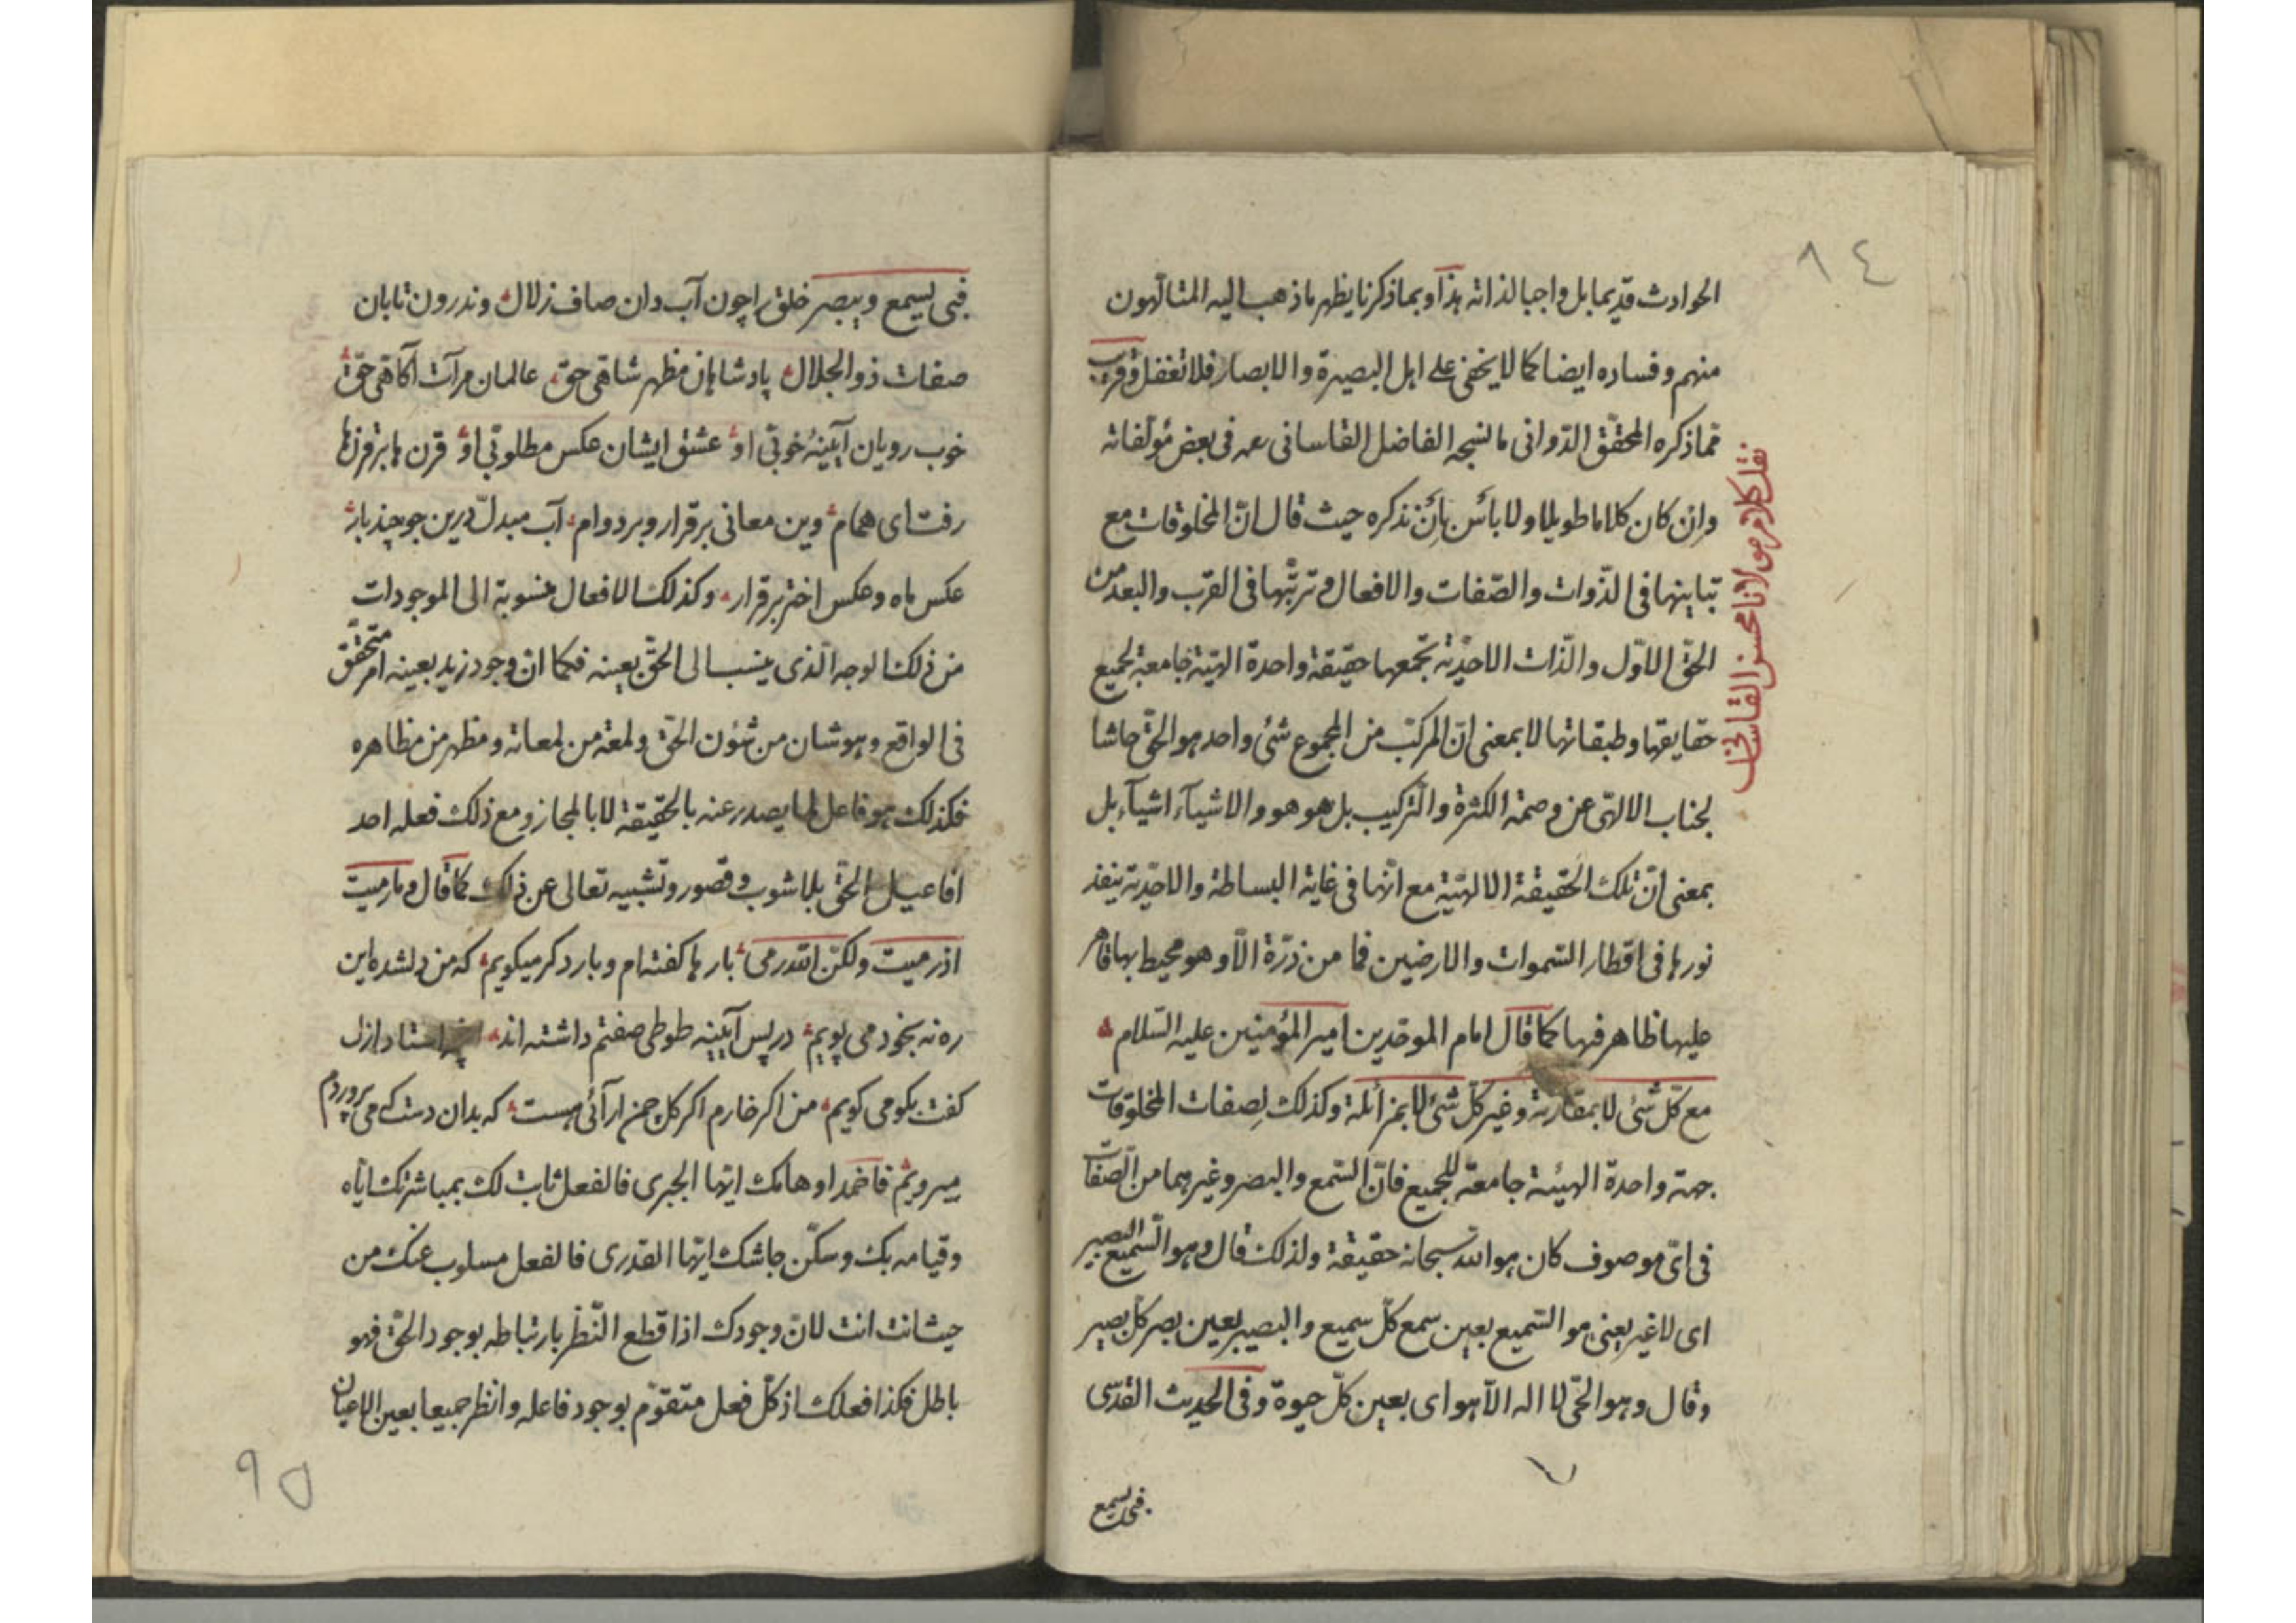 ٨٤
الحوادث قديما بل واجبا لذاته هذا وبما ذكرنا يظهر ما ذهب اليه المتالّهون
منهم وفساده ايضا كما لا يخفى على اهل البصيرة والابصار فلا تغفل وقريب
مما ذكره المحقّق الدّوانى ما نسجه الفاضل القاسانى فى بعض مؤلّفاته
وان كان كلاما طويلا ولا بأس بأن نذكره حيث قال انّ المخلوقات مع
تباينها فى الذّوات والصّفات والافعال وترتّبها فى القرب والبعد من
الحقّ الاوّل والذّات الاحديّة تجمعها حقيقة واحدة الهيّة جامعة لجميع
حقايقها وطبقاتها لا بمعنى انّ المركّب من المجموع شئ واحد هو الحقّ حاشا
لجناب الالهى عن وصمة الكثرة والتّركيب بل هو هو والاشيآء اشيآء بل
بمعنى انّ تلك الحقيقة الالهيّة مع انّها فى غاية البساطة والاحديّة ينفذ
نورها فى اقطار السّموات والارضين فما من ذرّة الّا وهو محيط بها قاهر
عليها ظاهر فيها كما قال امام الموحّدين امير المؤمنين عليه السّلام
مع كلّ شئ لا بمقارنة وغير كلّ شئ لا بمزائلة وكذلك لصفات المخلوقات
جهة واحدة الهيئة جامعة للجميع فانّ السّمع والبصر وغيرهما من الصّفات
فى اىّ موصوف كان هو الله سبحانه حقيقة ولذلك قال وهو السّميع البصير
اى لا غير يعنى هو السّميع بعين سمع كلّ سميع والبصير بعين بصر كلّ بصير
وقال وهو الحىّ لا اله الّا هو اى بعين كلّ حيوة وفى الحديث القدسى
فبى يسمع
نقل كلام مولانا محسن القاسانى
فبى يسمع وبيبصر خلق را چون آب دان صاف زلال وندرون تابان
صفات ذوالجلال پادشاهان مظهر شاهى حق عالمان مرآت آكاهى حق
خوب رويان آيينۀ خوبى او عشق ايشان عكس مطلوبى او قرن ها بر قرن ها
رفت اى همام وين معانى برقرار وبردوام آب مبدل درين جو چند بار
عكس ماه وعكس اختر برقرار وكذلك الافعال منسوبة الى الموجودات
من ذلك الوجه الّذى ينسب الى الحقّ بعينه فكما ان وجود زيد بعينه امر متحقّق
فى الواقع وهو شان من شئون الحقّ ولمعة من لمعاته ومظهر من مظاهره
فكذلك هو فاعل لما يصدر عنه بالحقيقة لا بالمجاز ومع ذلك فعله احد
افاعيل الحقّ بلا شوب وقصور وتشبيه تعالى عن ذلك كما قال وما رميت
اذ رميت ولكنّ الله رمى بارها كفته ام وبار دكر ميكويم كه من دلشده اين
ره نه بخود مى پويم در پس آيينه طوطى صفتم داشته اند استاد ازل
كفت بكو مى كويم من اكر خارم اكر كل چمن آرائى هست كه بدان دست كه مى پروردم
ميرويم فاخمد اوهامك ايّها الجبرى فالفعل ثابت لك بمباشرتك ايّاه
وقيامه بك وسكّن جاشك ايّها القدرى فالفعل مسلوب عنك من
حيث انت انت لانّ وجودك اذا قطع النّظر بارتباطه بوجود الحقّ فهو
باطل فكذا فعلك اذ كلّ فعل متقوّم بوجود فاعله وانظر جميعا بعين الاعيان
٩٥